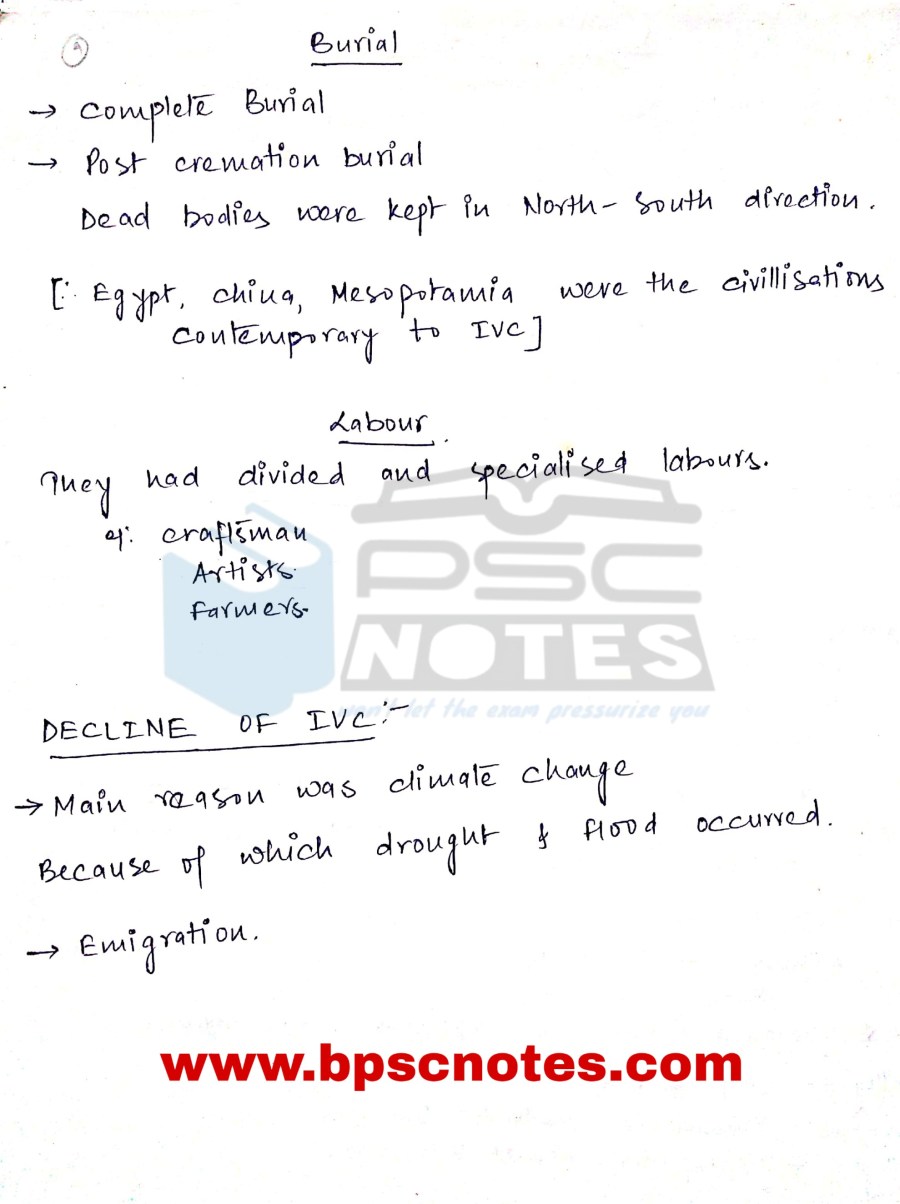 Burial
→ Complete Burial
→ Post cremation burial
Dead bodies were kept in North-South direction.
[∵ Egypt, China, Mesopotamia were the civillisations
Contemporary to IVC]
Labour
They had divided and specialised labours.
eg: craftsman
Artists
farmers.
PSC
NOTES
DECLINE OF IVC:-
don't let the exam pressurize you
→ Main reason was climate change
Because of which drought & flood occurred.
→ Emigration.
www.bpscnotes.com